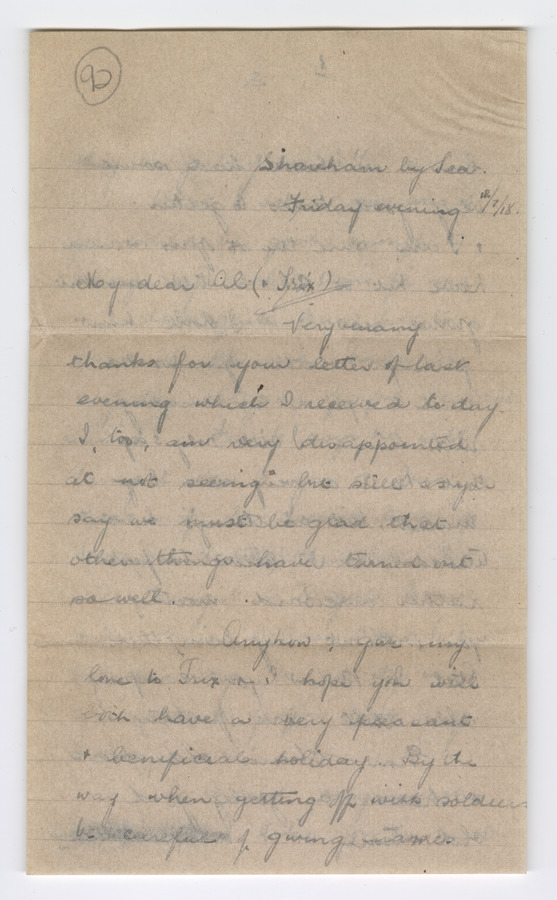 92
Shoreham by Sea.
Friday evening /7/18.
My dear Al (& Trix)
Very many
thanks for your letter of last
evening which I received to day.
I, too, am very disappointed
at not seeing but still as you
say we must be glad that
other things have turned out
so well.
Anyhow my
love to Trix & I hope you will
both have a very pleasant
& beneficial holiday. By the
way when getting off with soldiers
be careful of giving names.